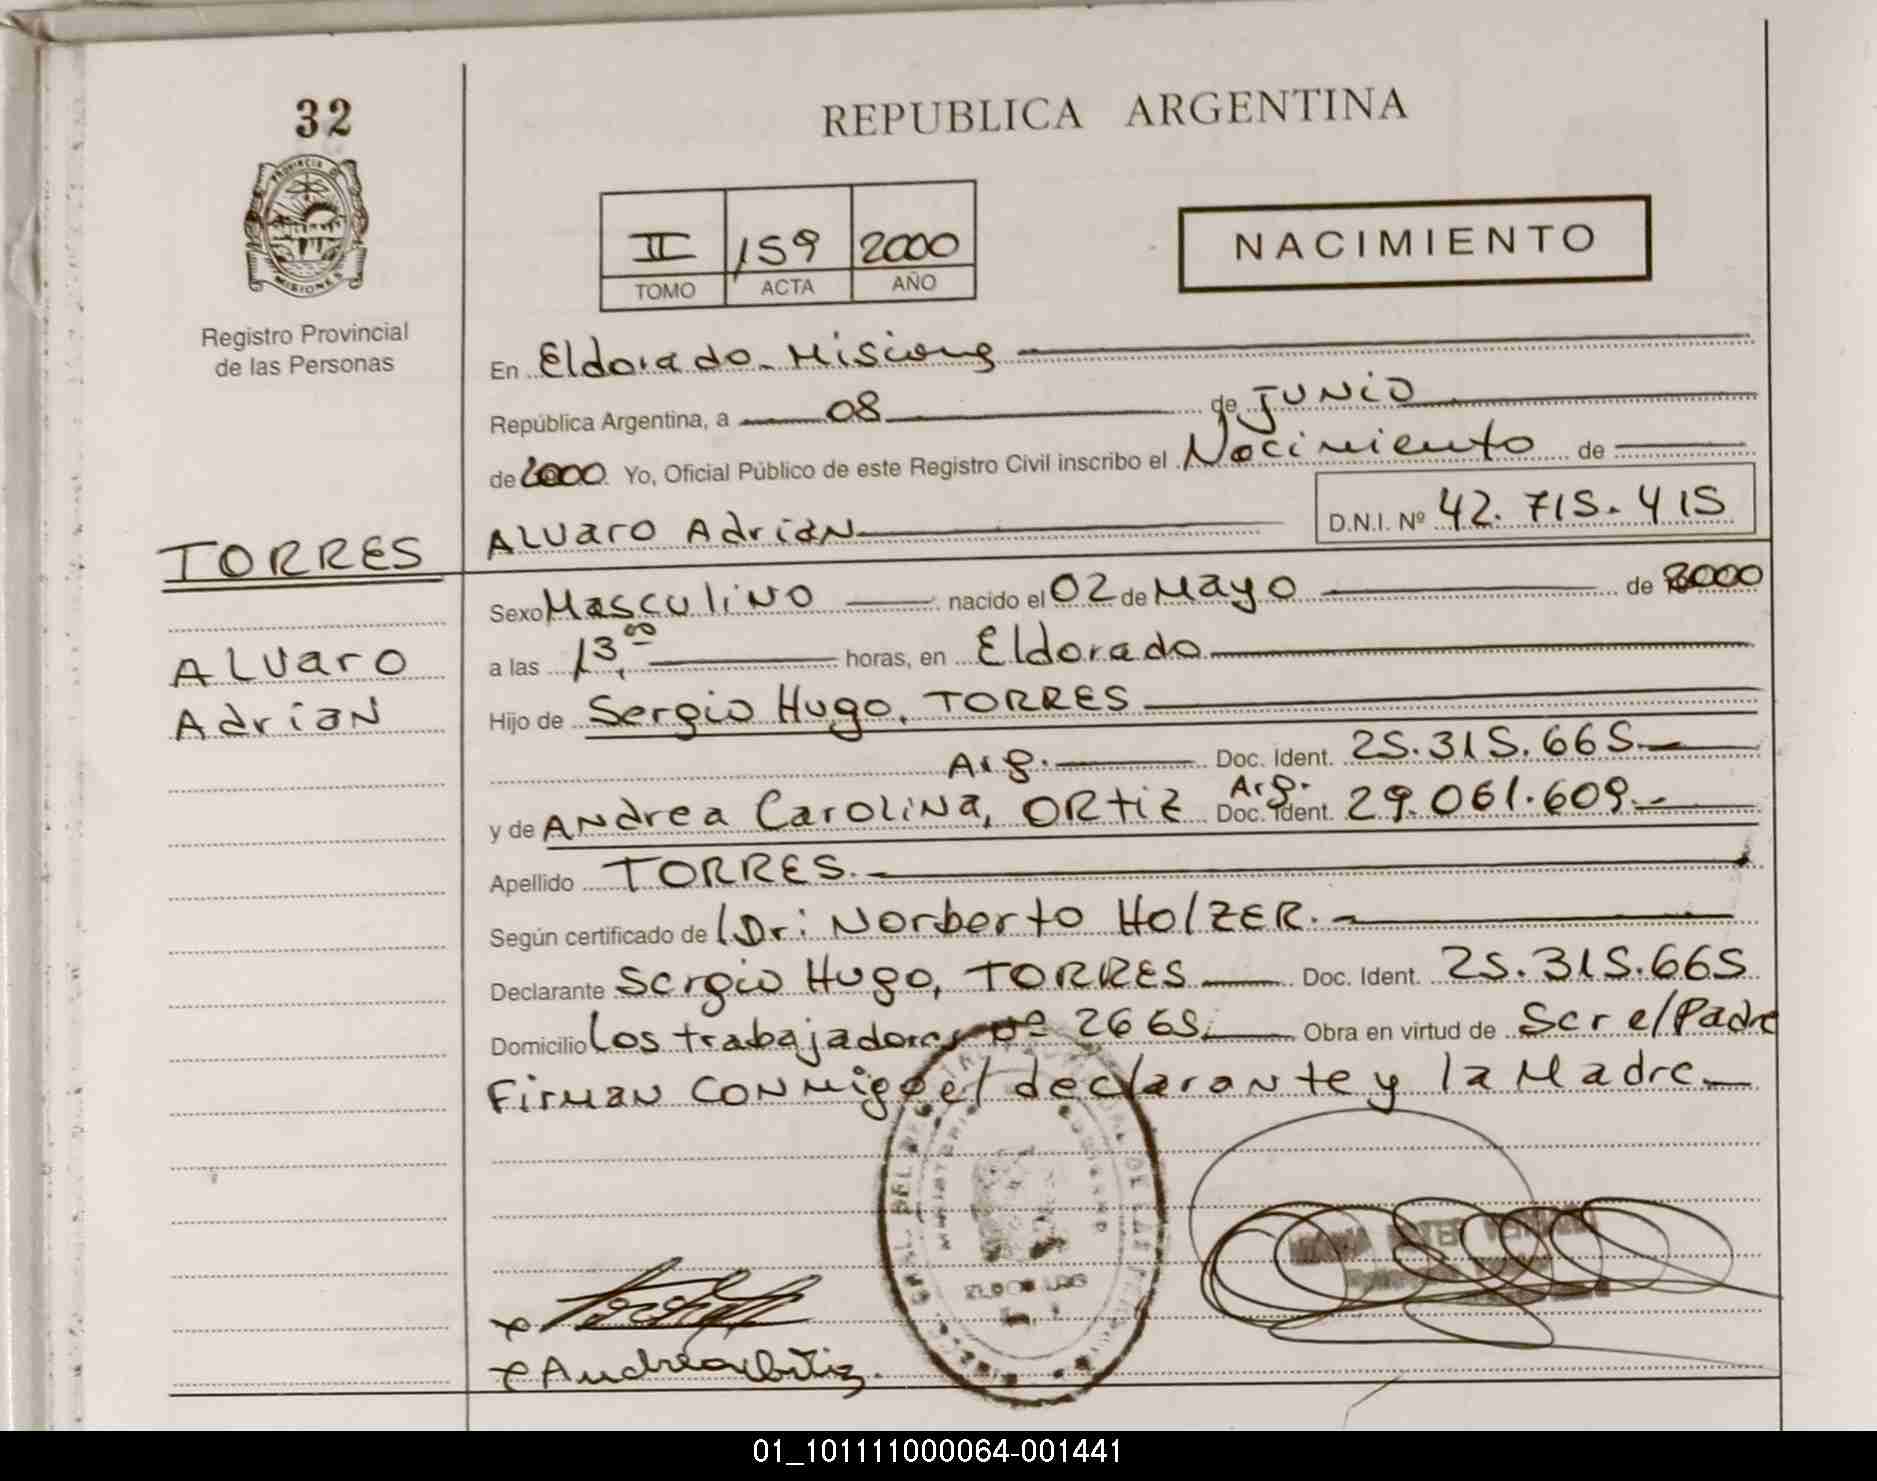 32
PROVINCIA DE
MISIONES
Registro Provincial
de las Personas
REPUBLICA ARGENTINA
II 159 2000
TOMO ACTA AÑO
NACIMIENTO
En Eldorado - Misiones
República Argentina, a 08 de JUNIO
de 2000. Yo, Oficial Público de este Registro Civil inscribo el Nacimiento de
ALVARO AdriAN D.N.I. Nº 42.715.415
TORRES
ALVARO
AdriAN
Sexo MAsculiNO nacido el 02 de MAyO de 2000
a las 13,00 horas, en Eldorado
Hijo de Sergio Hugo, TORRES
Arg. Doc. Ident. 25.315.665
y de ANdrea CaroliNa, ORtiZ Arg. Doc. Ident. 29.061.609
Apellido TORRES.
Según certificado de l Dr: Norberto HOlZER.
Declarante Sergio Hugo, TORRES Doc. Ident. 25.315.665
Domicilio Los trabajadores nº 2665. Obra en virtud de Ser el Padre
FirmaN CONmigo el declarante y la Madre.
x
x Andrea Ortiz.
01_101111000064-001441